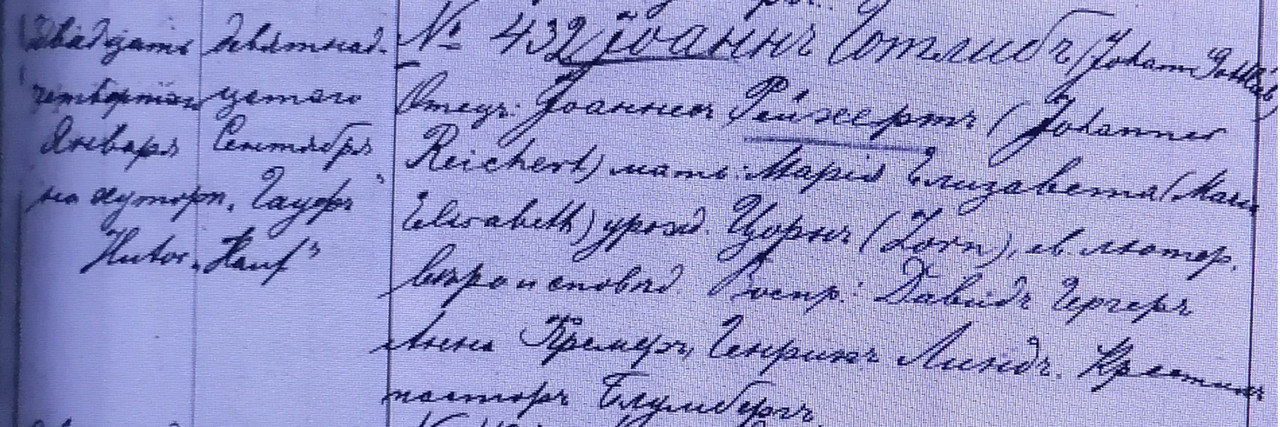 Двадцать
четвертаго
Января
девятнад-
цатаго
Сентября
на хуторѣ „Гауфъ"
Hutor „Hauf"
№ 432 Іоаннъ Готлибъ (Johann Gottlieb)
Отецъ: Іоаннесъ Рейхертъ (Johannes
Reichert) мать: Марія Елизавета (Maria
Elisabeth) урожд. Цорнъ (Zorn), ев. лютер.
вѣроисповѣд. Воспр.: Давидъ Гергеръ
Анна Кремеръ, Генрихъ Линдъ. Крестилъ
пасторъ Блумбергъ.